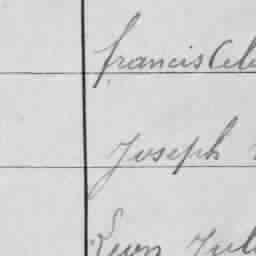 Francis
Joseph
Leon Jul